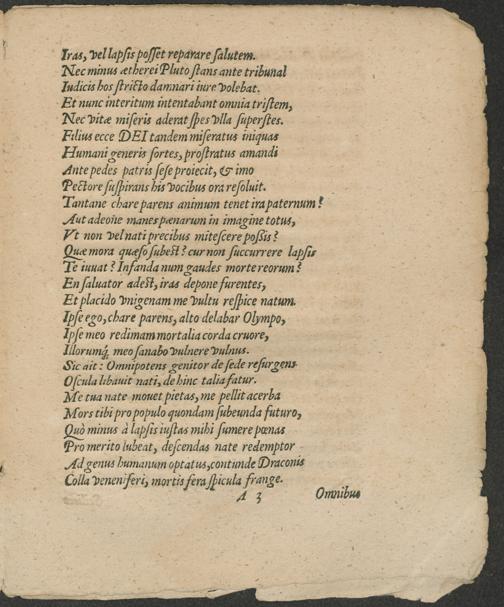 Iras, vel lapsis posset reparare salutem.
Nec minus ætherei Pluto stans ante tribunal
Iudicis hos stricto damnari iure volebat.
Et nunc interitum intentabant omnia tristem,
Nec vitæ miseris aderat spes vlla superstes.
Filius ecce DEI tandem miseratus iniquas
Humani generis sortes, prostratus amandi
Ante pedes patris sese proiecit, & imo
Pectore suspirans his vocibus ora resoluit.
Tantane chare parens animum tenet ira paternum?
Aut adeone manes pœnarum in imagine totus,
Vt non vel nati precibus mitescere possis?
Quæ mora quæso subest? cur non succurrere lapsis
Te iuuat? Infanda num gaudes morte reorum?
En saluator adest, iras depone furentes,
Et placido vnigenam me vultu respice natum.
Ipse ego, chare parens, alto delabar Olympo,
Ipse meo redimam mortalia corda cruore,
Illorumq́; meo sanabo vulnere vulnus.
Sic ait: Omnipotens genitor de sede resurgens
Oscula libauit nati, dehinc talia fatur.
Me tua nate mouet pietas, me pellit acerba
Mors tibi pro populo quondam subeunda futuro,
Quò minus à lapsis iustas mihi sumere pœnas
Pro merito lubeat, descendas nate redemptor
Ad genus humanum optatus, contunde Draconis
Colla veneniferi, mortis fera spicula frange.
A 3 Omnibus